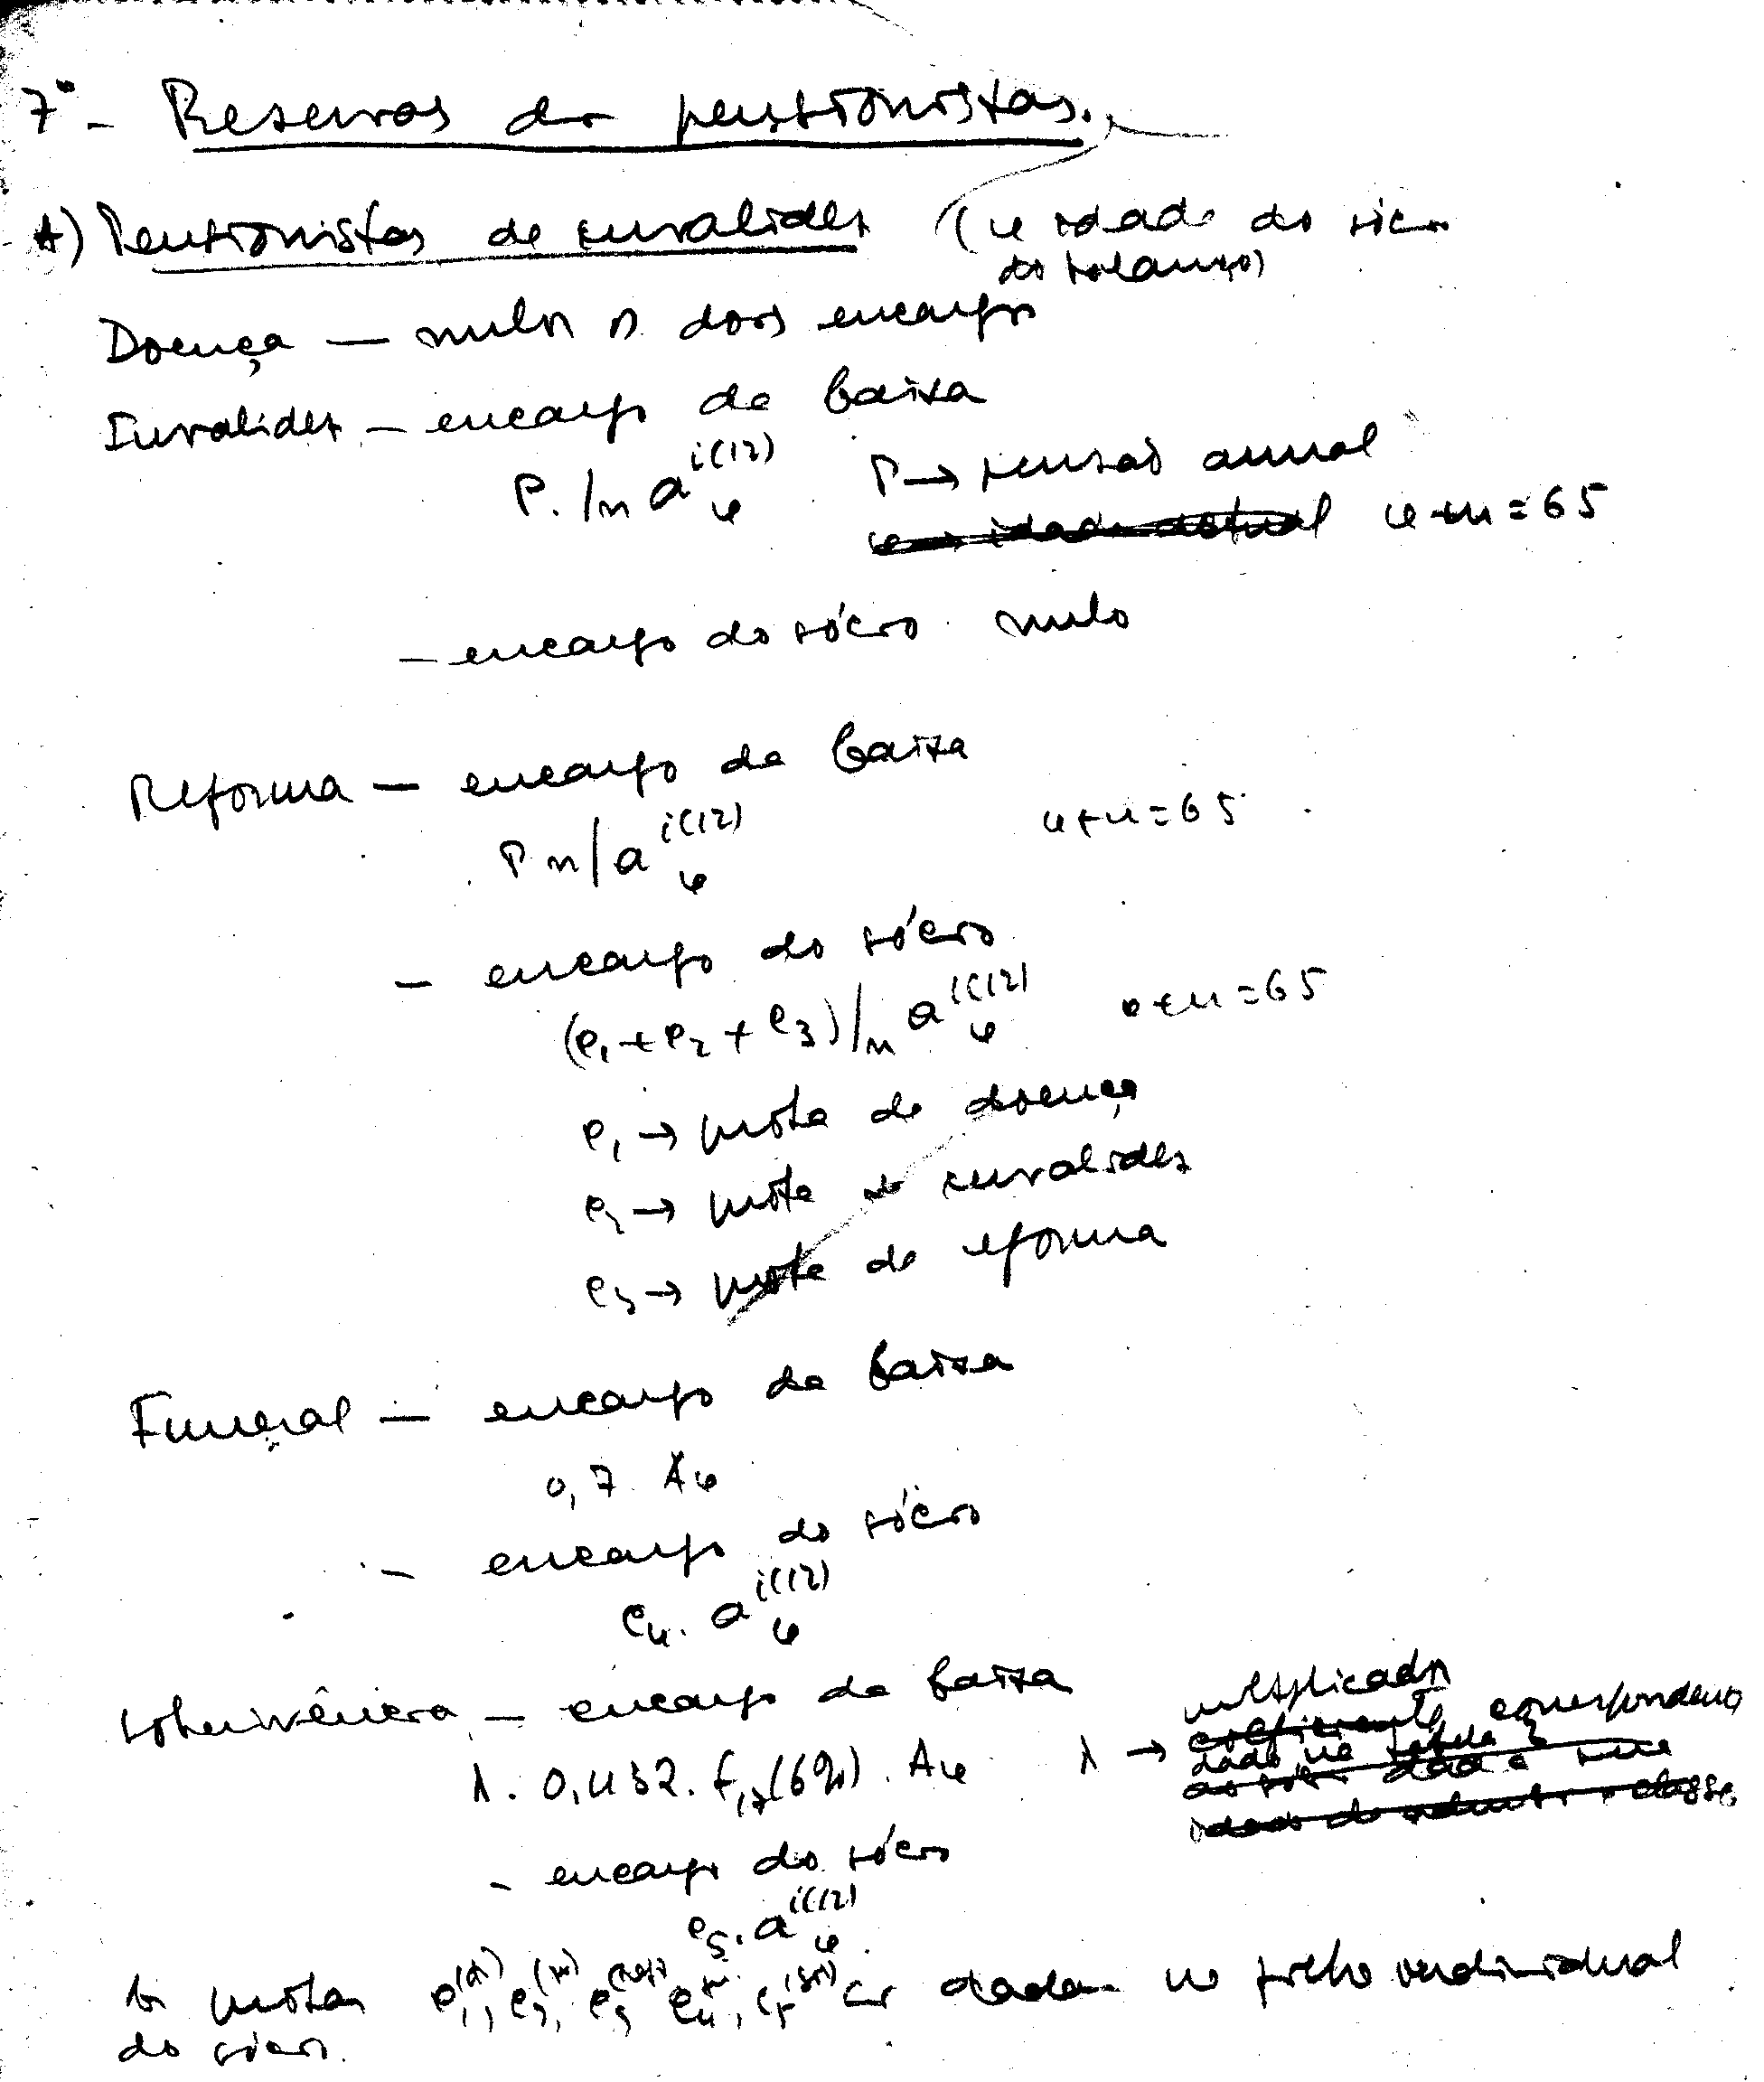 7º - Reservas de pensionistas.
A) Pensionistas de invalidez (φ idade do sócio
do balanço)
Doença — nulos os dois encargos
Invalidez — encargo da Caixa
P. /n a φ i(12) P → pensão anual
φ → idade actual φ+n = 65
— encargo do sócio nulo
Reforma — encargo da Caixa
P n/ a φ i(12) φ+n = 65
— encargo do sócio
(e1 + e2 + e3) /n a φ i(12) φ+n = 65
e1 → quota de doença
e2 → quota de invalidez
e3 → quota de reforma
Funeral — encargo da Caixa
0,7. Aφ
— encargo do sócio
e4. a φ i(12)
Sobrevivência — encargo da Caixa
λ. 0,432. f17(6%). Aφ λ → multiplicador
coeficiente correspondente
dado na tabela 3
ao sócio dada a sua
idade de admissão e classe
- encargo do sócio
e5. a φ i(12)
As quotas e1, e2, e3, e4, e5 são dadas na ficha individual
do sócio.